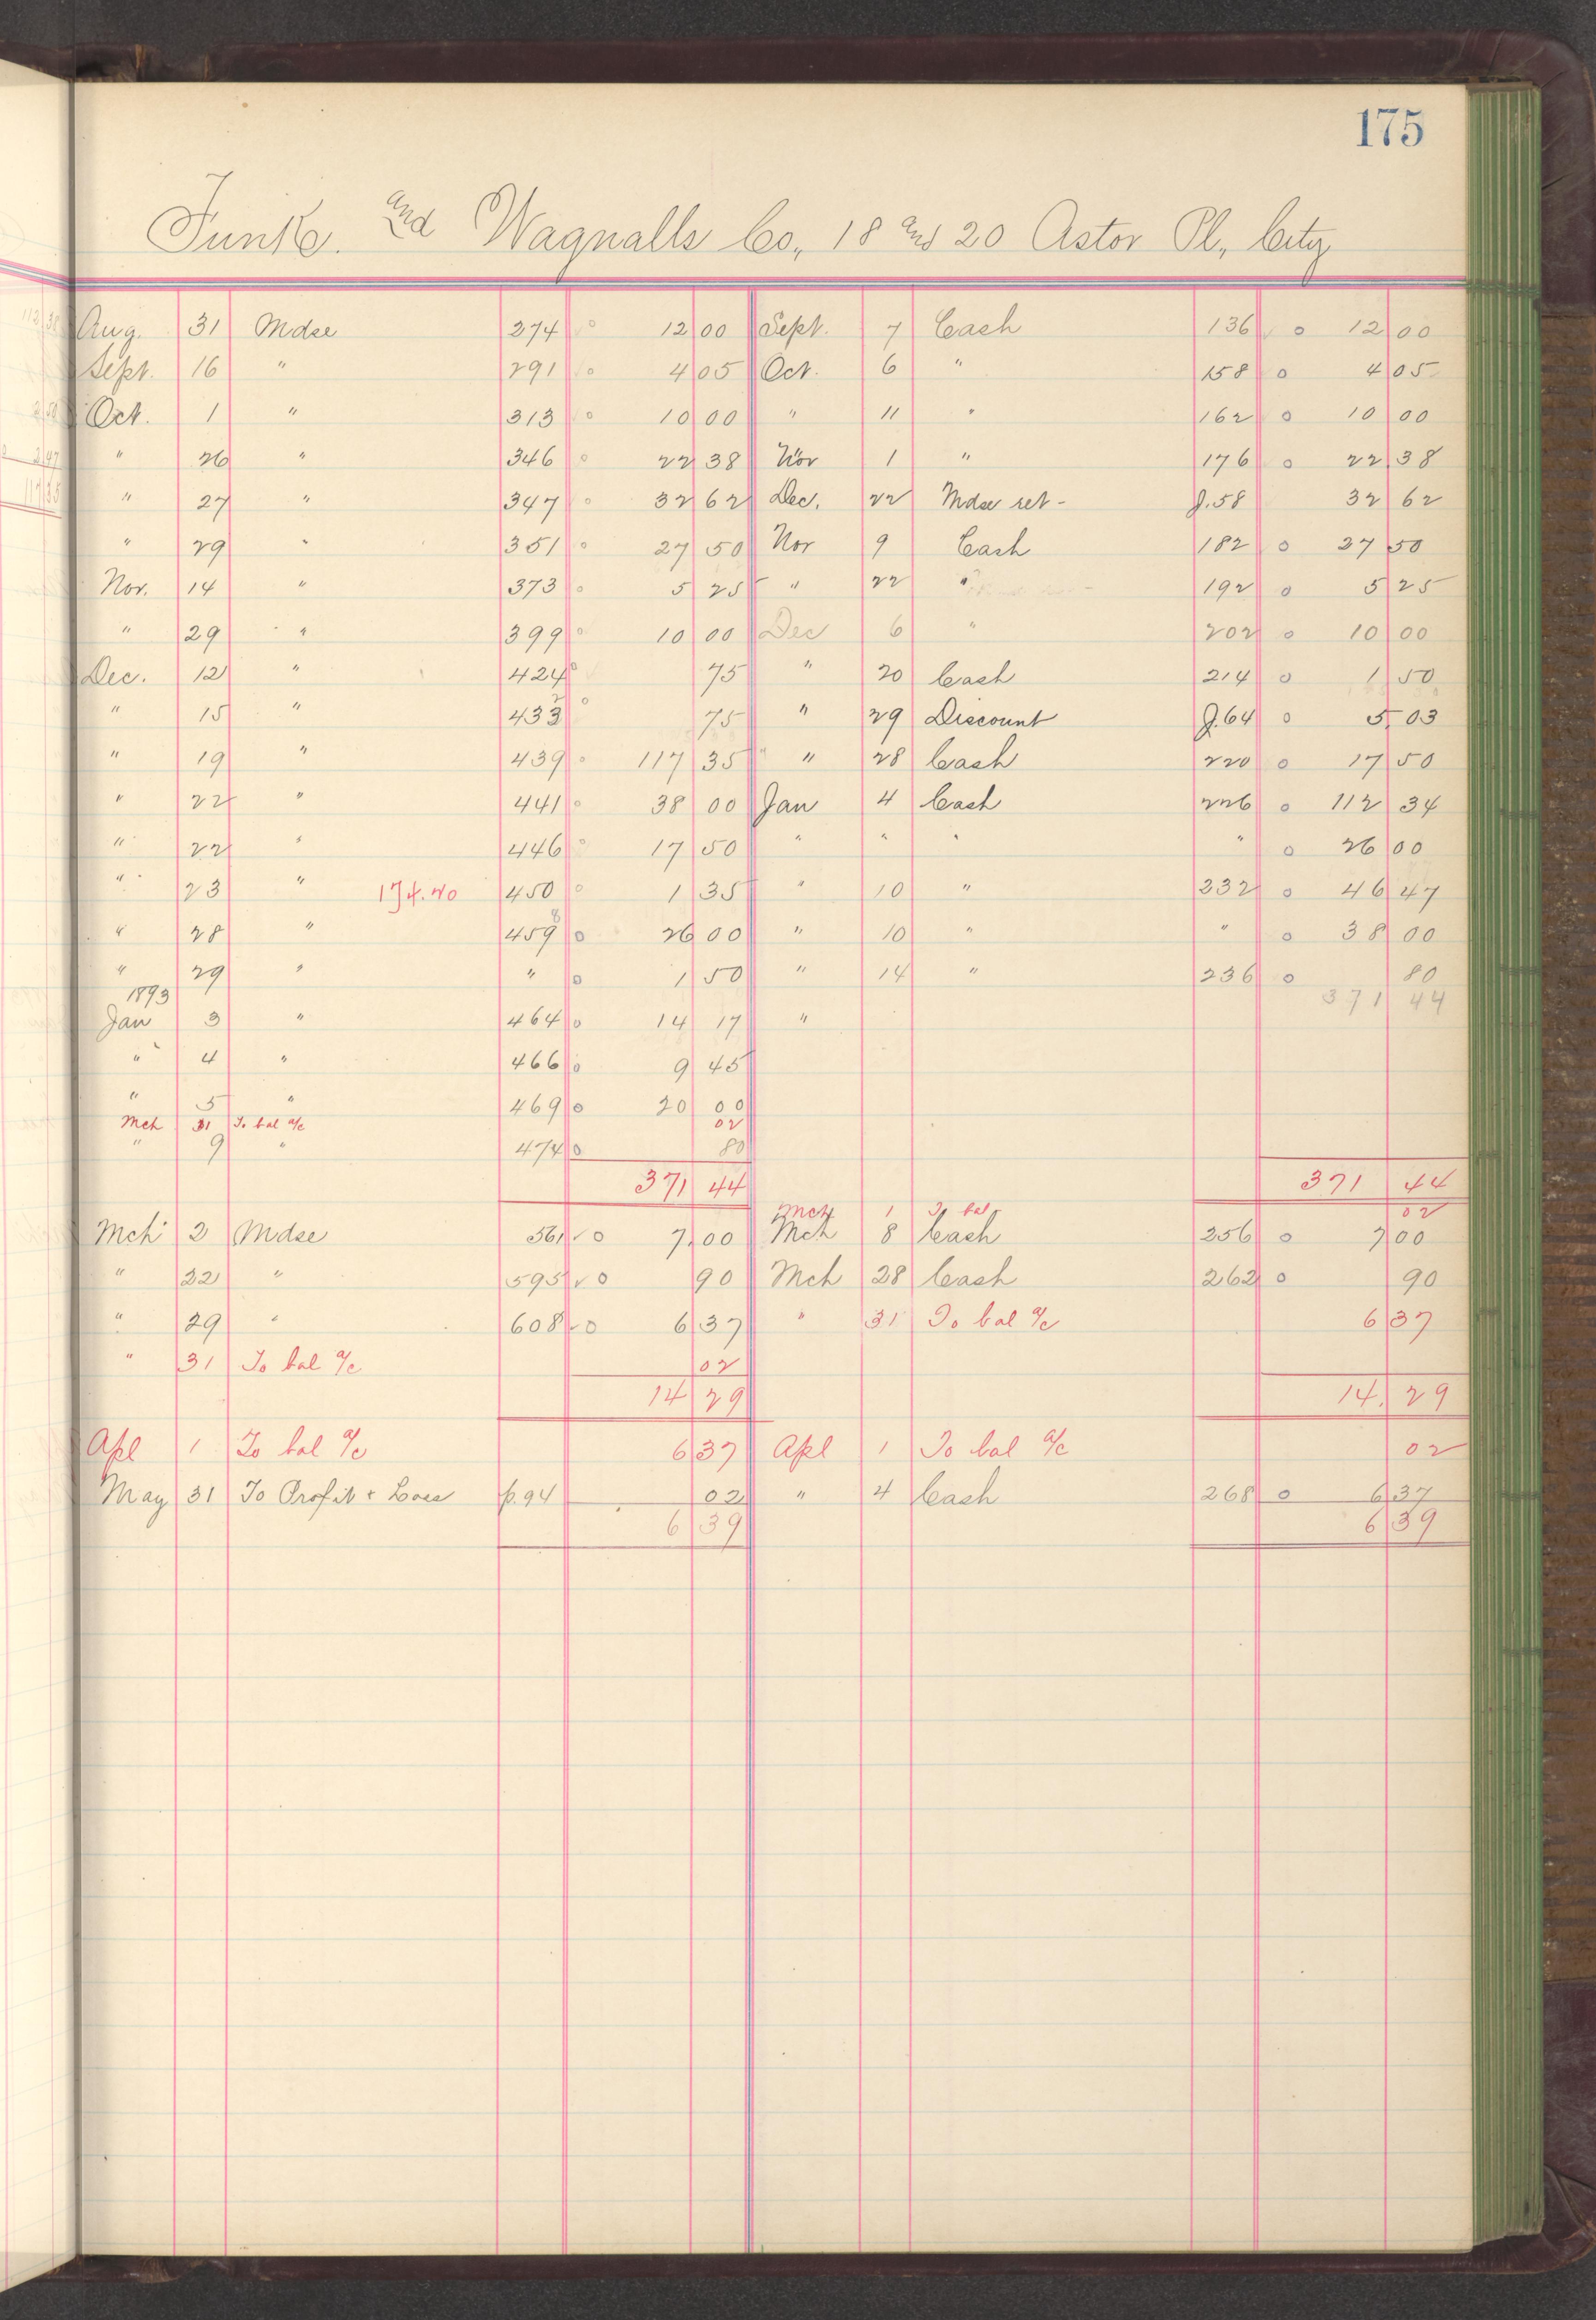 175
Funk. and Wagnalls Co., 18 and 20 Astor Pl., City
Aug. 31 Mdse 274 o 12 00 Sept. 7 Cash 136 o 12 00
Sept. 16 " 291 o 4 05 Oct. 6 " 158 o 4 05
Oct. 1 " 313 o 10 00 " 11 " 162 o 10 00
" 26 " 346 o 22 38 Nov 1 " 176 o 22 38
" 27 " 347 o 32 62 Dec. 22 Mdse ret - J.58 32 62
" 29 " 351 o 27 50 Nov 9 Cash 182 o 27 50
Nov. 14 " 373 o 5 25 " 22 " 192 o 5 25
" 29 " 399 o 10 00 Dec 6 " 202 o 10 00
Dec. 12 " 424 o 75 " 20 Cash 214 o 1 50
" 15 " 433 2 o 75 " 29 Discount J.64 o 5.03
" 19 " 439 o 117 35 " 28 Cash 220 o 17 50
" 22 " 441 o 38 00 Jan 4 Cash 226 o 112 34
" 22 " 446 o 17 50 " " " " o 26 00
" 23 " 174.20 450 o 1 35 " 10 " 232 o 46 47
" 28 " 459 8 o 26 00 " 10 " " o 38 00
" 29 " " o 1 50 " 14 " 236 o 80
1893 371 44
Jan 3 " 464 o 14 17 "
" 4 " 466 o 9 45
" 5 " 469 o 20 00
Mch 31 To bal a/c 02
" 9 " 474 o 80
371 44 371 44
Mch 1 To bal 02
Mch 2 Mdse 561 ✓ o 7.00 Mch 8 Cash 256 o 7 00
" 22 " 595 ✓ o 90 Mch 28 Cash 262 o 90
" 29 " 608 ✓ o 6 37 " 31 To bal a/c 6 37
" 31 To bal a/c 02
14 29 14. 29
Apl 1 To bal a/c 6 37 Apl 1 To bal a/c 02
May 31 To Profit + Loss p.94 02 " 4 Cash 268 o 6 37
6 39 6 39